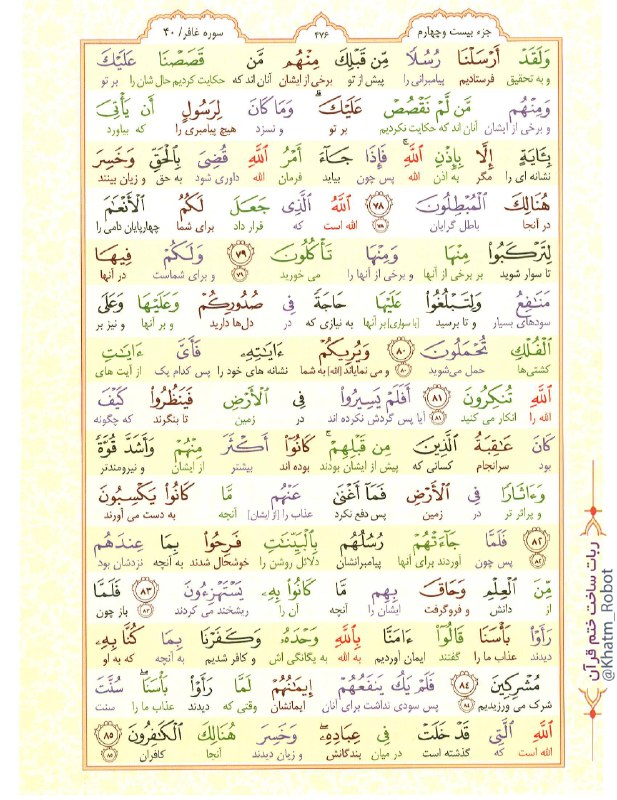 جزء بیست وچهارم
۴۷۶
سوره غافر/ ۴۰
وَلَقَدْ أَرْسَلْنَا رُسُلًا مِّن قَبْلِكَ مِنْهُم مَّن قَصَصْنَا عَلَيْكَ
و به تحقیق فرستادیم پیامبرانی را پیش از تو برخی از ایشان آنان اند که حکایت کردیم حال شان را بر تو
وَمِنْهُم مَّن لَّمْ نَقْصُصْ عَلَيْكَ ۗ وَمَا كَانَ لِرَسُولٍ أَن يَأْتِيَ
و برخی از ایشان آنان اند که حکایت نکردیم بر تو و نسزد هیچ پیامبری را که بیاورد
بِـَٔايَةٍ إِلَّا بِإِذْنِ ٱللَّهِ ۚ فَإِذَا جَآءَ أَمْرُ ٱللَّهِ قُضِيَ بِٱلْحَقِّ وَخَسِرَ
نشانه ای را مگر به اذن الله پس چون بیاید فرمان الله داوری شود به حق و زیان بینند
هُنَالِكَ ٱلْمُبْطِلُونَ ۷۸ ٱللَّهُ ٱلَّذِى جَعَلَ لَكُمُ ٱلْأَنْعَـٰمَ
در آنجا باطل گرایان ۷۸ الله است که قرار داد برای شما چهارپایان دامی را
لِتَرْكَبُوا۟ مِنْهَا وَمِنْهَا تَأْكُلُونَ ۷۹ وَلَكُمْ فِيهَا
تا سوار شوید بر برخی از آنها و برخی از آنها را می خورید ۷۹ و برای شماست در آنها
مَنَـٰفِعُ وَلِتَبْلُغُوا۟ عَلَيْهَا حَاجَةً فِى صُدُورِكُمْ وَعَلَيْهَا وَعَلَى
سودهای بسیار و تا برسید [با سواری] بر آنها به نیازی که در دل‌ها دارید و بر آنها و نیز بر
ٱلْفُلْكِ تُحْمَلُونَ ۸۰ وَيُرِيكُمْ ءَايَـٰتِهِۦ فَأَىَّ ءَايَـٰتِ
کشتی‌ها حمل می‌شوید ۸۰ و می نمایاند [الله] به شما نشانه های خود را پس کدام یک از آیت های
ٱللَّهِ تُنكِرُونَ ۸۱ أَفَلَمْ يَسِيرُوا۟ فِى ٱلْأَرْضِ فَيَنظُرُوا۟ كَيْفَ
الله را انکار می کنید ۸۱ آیا پس گردش نکرده اند در زمین تا بنگرند که چگونه
كَانَ عَـٰقِبَةُ ٱلَّذِينَ مِن قَبْلِهِمْ ۚ كَانُوٓا۟ أَكْثَرَ مِنْهُمْ وَأَشَدَّ قُوَّةً
بود سرانجام کسانی که پیش از ایشان بودند بوده اند بیشتر از ایشان و نیرومندتر
وَءَاثَارًا فِى ٱلْأَرْضِ فَمَآ أَغْنَىٰ عَنْهُم مَّا كَانُوا۟ يَكْسِبُونَ
و پراثر تر در زمین پس دفع نکرد عذاب را [از ایشان] آنچه به دست می آورند
۸۲ فَلَمَّا جَآءَتْهُمْ رُسُلُهُم بِٱلْبَيِّنَـٰتِ فَرِحُوا۟ بِمَا عِندَهُم
۸۲ پس چون آوردند برای آنها پیامبرانشان دلائل روشن را خوشحال شدند به آنچه نزدشان بود
مِّنَ ٱلْعِلْمِ وَحَاقَ بِهِم مَّا كَانُوا۟ بِهِۦ يَسْتَهْزِءُونَ ۸۳ فَلَمَّا
از دانش و فروگرفت ایشان را آنچه آن را ریشخند می کردند ۸۳ باز چون
رَأَوْا۟ بَأْسَنَا قَالُوٓا۟ ءَامَنَّا بِٱللَّهِ وَحْدَهُۥ وَكَفَرْنَا بِمَا كُنَّا بِهِۦ
دیدند عذاب ما را گفتند ایمان آوردیم به الله به یگانگی اش و کافر شدیم به آنچه که به او
مُشْرِكِينَ ۸۴ فَلَمْ يَكُ يَنفَعُهُمْ إِيمَـٰنُهُمْ لَمَّا رَأَوْا۟ بَأْسَنَا ۖ سُنَّتَ
شرک می ورزیدیم ۸۴ پس سودی نداشت برای آنان ایمانشان وقتی که دیدند عذاب ما را سنت
ٱللَّهِ ٱلَّتِى قَدْ خَلَتْ فِى عِبَادِهِۦ ۖ وَخَسِرَ هُنَالِكَ ٱلْكَـٰفِرُونَ ۸۵
الله است که گذشته است در میان بندگانش و زیان دیدند آنجا کافران ۸۵
ربات ساخت ختم قرآن
@Khatm_Robot